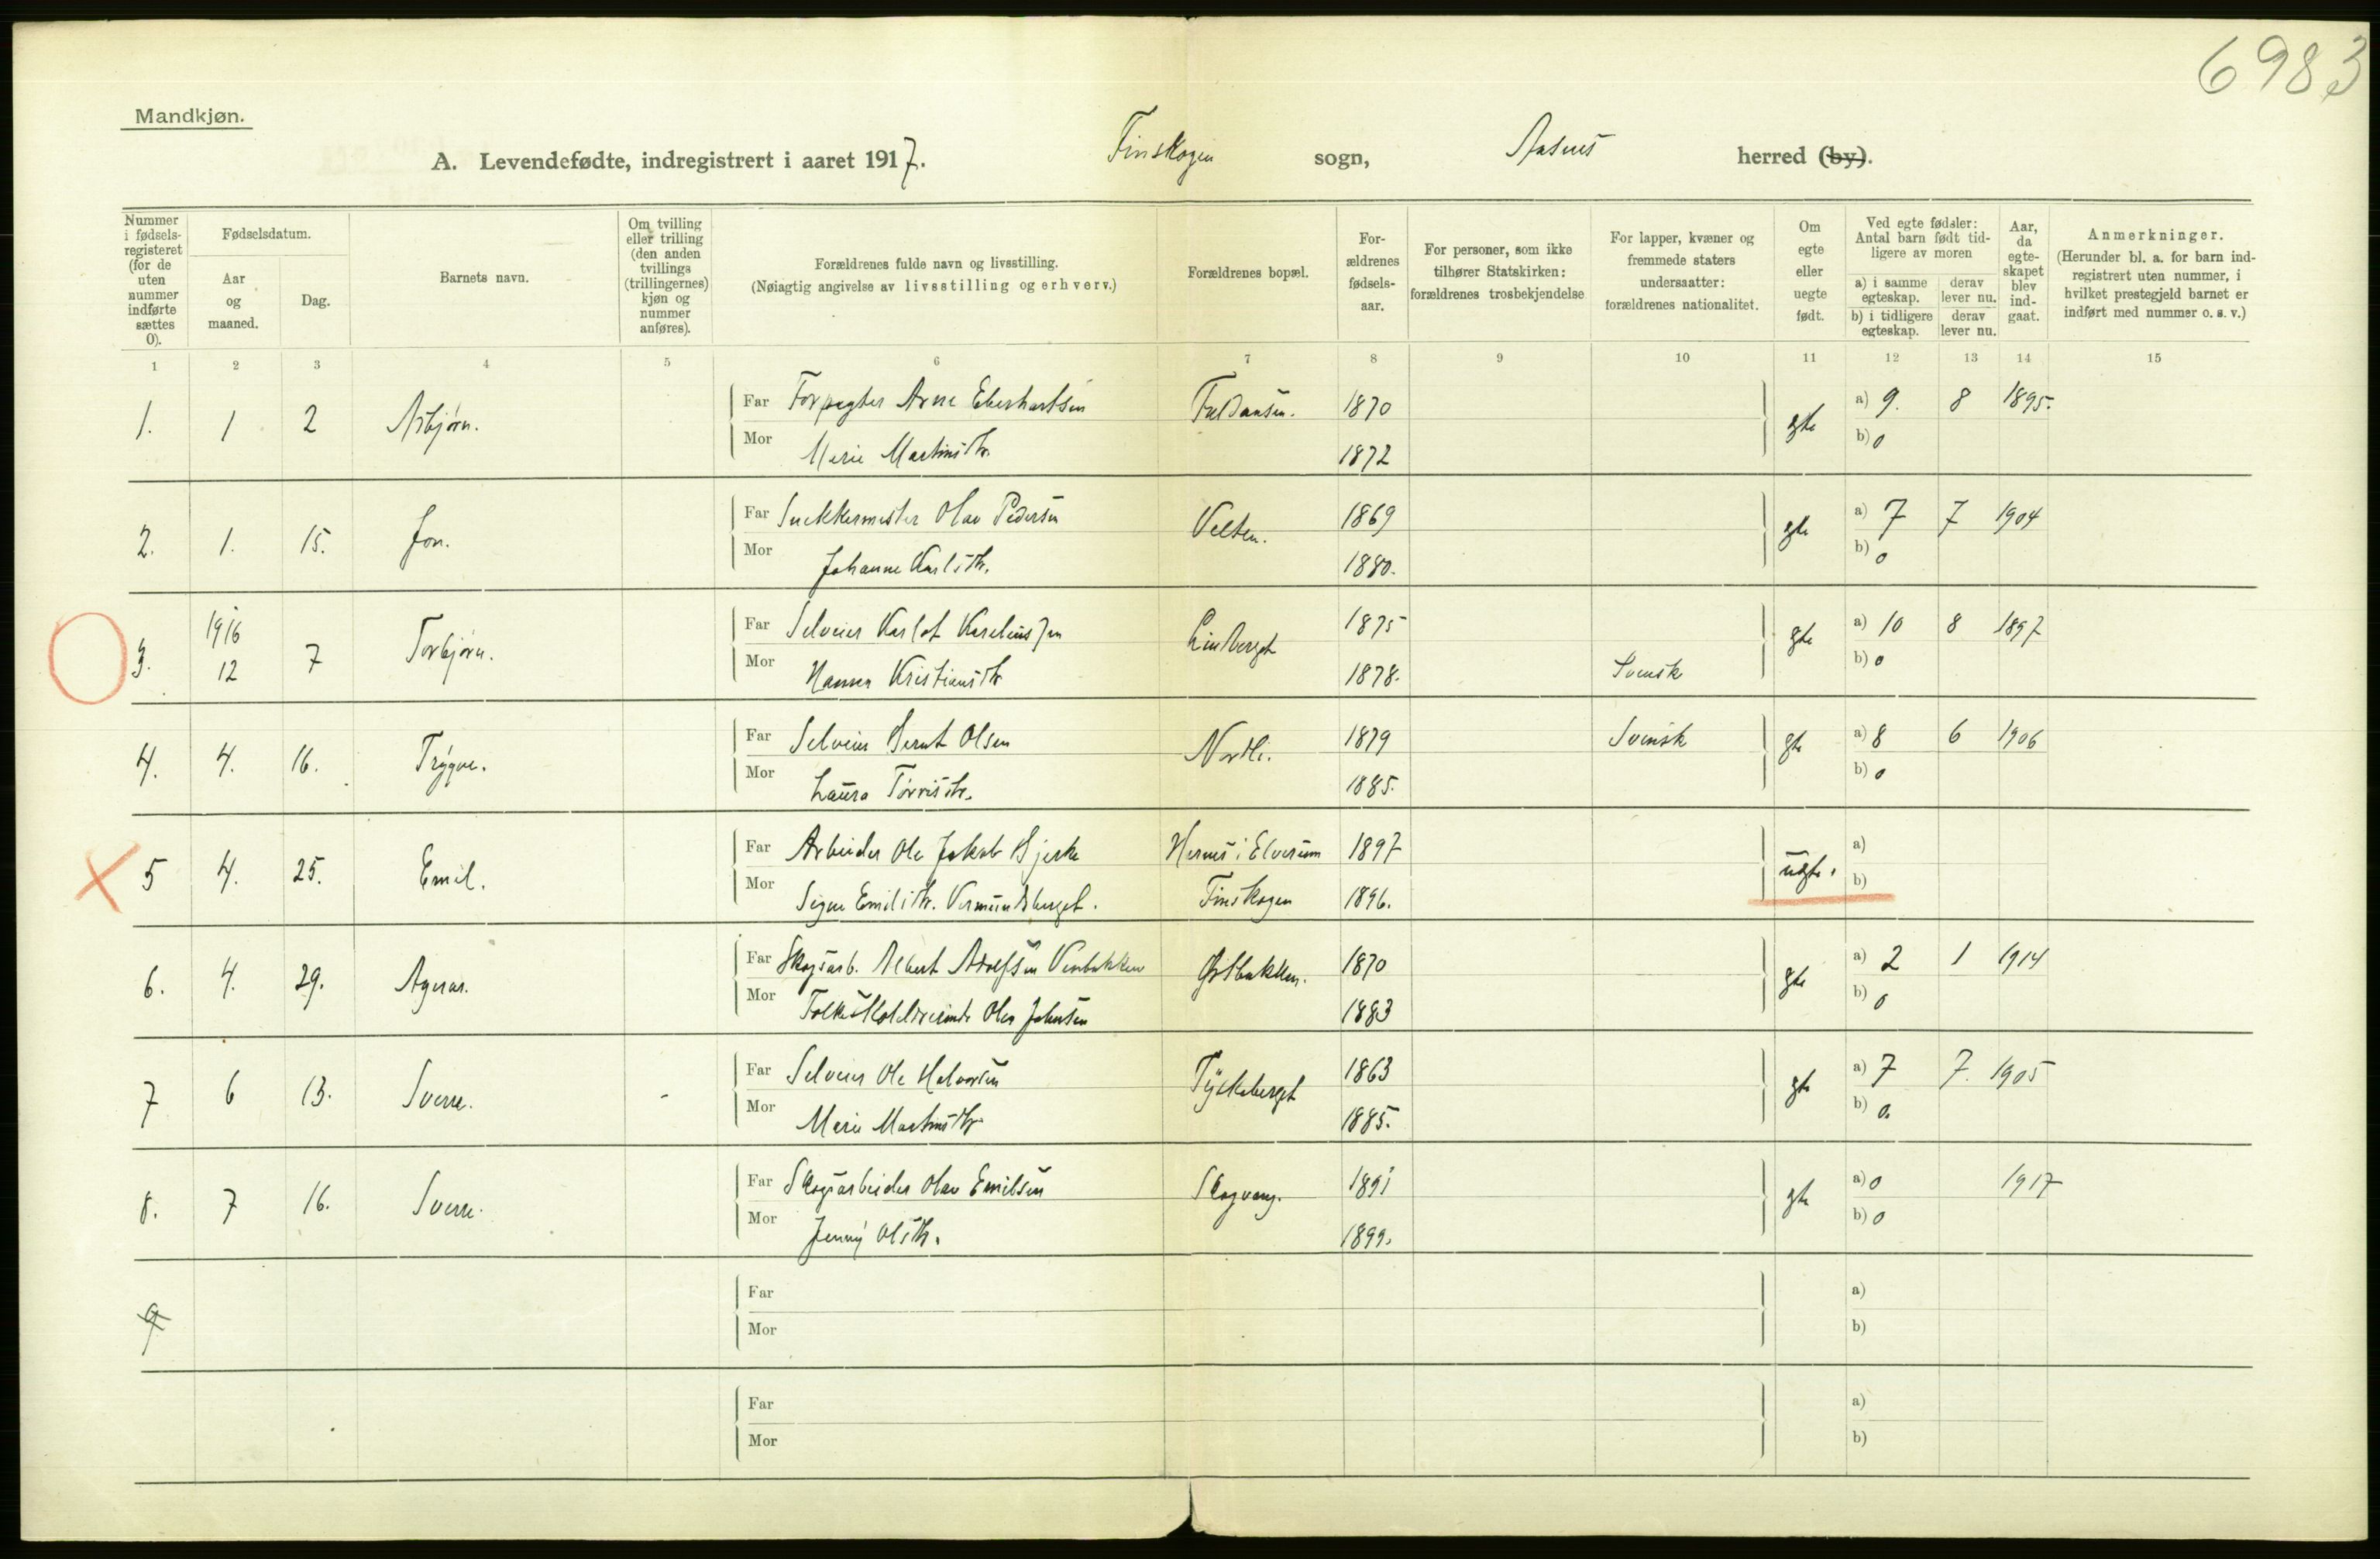 6983
Mandkjøn.
A. Levendefødte, indregistrert i aaret 1917. Finskogen sogn, Aasnes herred (by).
Nummer i fødsels-registeret (for de uten nummer indførte sættes 0).
Fødselsdatum.
Aar og maaned.
Dag.
Barnets navn.
Om tvilling eller trilling (den anden tvillings (trillingernes) kjøn og nummer anføres).
Forældrenes fulde navn og livsstilling.
(Nøiagtig angivelse av livsstilling og erhverv.)
Forældrenes bopæl.
For-ældrenes fødsels-aar.
For personer, som ikke tilhører Statskirken: forældrenes trosbekjendelse
For lapper, kvæner og fremmede staters undersaatter: forældrenes nationalitet.
Om egte eller uegte født.
Ved egte fødsler: Antal barn født tid-ligere av moren
a) i samme egteskap.
derav lever nu.
b) i tidligere egteskap.
derav lever nu.
Aar, da egte-skapet blev ind-gaat.
Anmerkninger.
(Herunder bl. a. for barn ind-registrert uten nummer, i hvilket prestegjeld barnet er indført med nummer o. s. v.)
1 2 3 4 5 6 7 8 9 10 11 12 13 14 15
1. 1 2 Asbjørn. Far Forpagter Arne Eberhartsen 1870 egte a) 9. 8 1895.
Mor Marie Martinsdtr. 1872 b) 0
2. 1. 15. Jon. Far Olav Pedersen Velten. 1869 egte a) 7 7 1904
Mor Johanne Karlsdtr. 1880. b) 0
3. 1916 12 7 Torbjørn. Far Selveier Karlot Lindberget 1875 egte a) 10 8 1897
Mor Hanna Kristiansdtr 1878. Svensk b) 0
4. 4. 16. Trygve. Far Selveier Bernt Olsen Nordli. 1879 Svensk egte a) 8 6 1906
Mor Laura 1885. b) 0
5 4. 25. Emil. Far Arbeider Ole Jakob Bjerke Hernes i Elverum 1897 uegte. a)
Mor Signe Emilsdtr. Vermundsberget. Finskogen 1896. b)
6. 4. 29. Agnar. Far Skogsarb. Albert Adolfsen 1870 egte a) 2 1 1914
Mor Johnsen 1883 b) 0
7 6 13. Sverre. - Far Selveier Ole Halvorsen Tyskeberget 1863 egte a) 7 7. 1905
Mor Marie Martinsdtr. 1885. b) 0.
8. 7 16. Sverre. Far Skogsarbeider Olav Emilsen Skogvang. 1891 egte a) 0 1917
Mor Jenny Olsdtr. 1899. b) 0
9 Far a)
Mor b)
Far a)
Mor b)